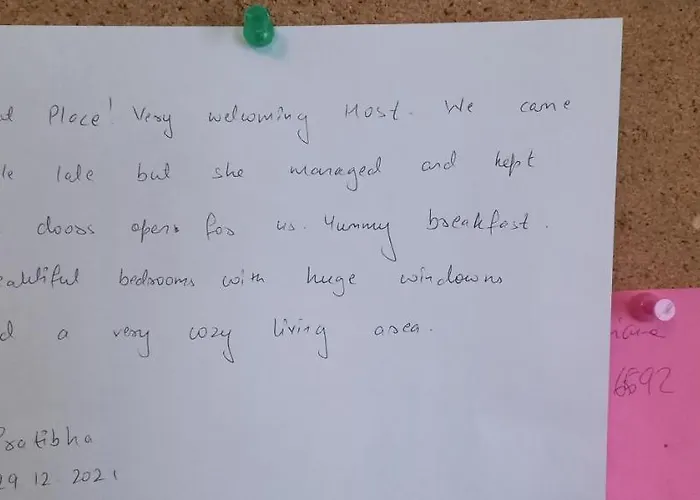 Place! Very welcoming Host. We came
late but she managed and kept
doors open for us. Yummy breakfast.
eautiful bedrooms with huge windowns
d a very cozy living area.
Pratibha
29 12 2021
6592